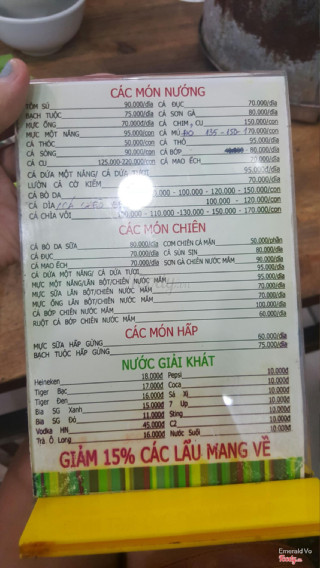 CÁC MÓN NƯỚNG
TÔM SÚ 90.000/dĩa
BẠCH TUỘC 75.000/dĩa
MỰC ỐNG 70.000/dĩa
MỰC MỘT NẮNG 95.000/con
CÁ THÓC 50.000/con
CÁ SÒNG 90.000/con
CÁ CU 125.000-220.000/con
CÁ DỨA MỘT NẮNG/ CÁ DỨA TƯƠI
LƯƠN CÁ CỜ KIẾM
CÁ BÒ DA 100.000 - 120.000 - 150.000/con
CÁ DÌA 100.000 - 120.000/con
CÁ CHÌA VÔI 110.000 - 130.000 - 150.000 - 170.000/con
CÁ ĐỤC 70.000/dĩa
CÁ SƠN GÀ 80.000/dĩa
CÁ CHIM, CU 150.000/con
CÁ MÚ 135 - 150 - 170.000/con
CÁ THỐ 95.000/dĩa
CÁ BỚP 90.000/dĩa
CÁ MAO ẾCH 70.000/dĩa
95.000/dĩa
70.000/dĩa
CÁC MÓN CHIÊN
CÁ BÒ DA SỮA 80.000/dĩa
CÁ ĐỤC 70.000/dĩa
CÁ MAO ẾCH 70.000/dĩa
CƠM CHIÊN CÁ MẶN 50.000/phần
CÁ SỦN SỈN 80.000/dĩa
SƠN GÀ CHIÊN NƯỚC MẮM 90.000/dĩa
CÁ DỨA MỘT NẮNG/ CÁ DỨA TƯƠI 95.000/dĩa
MỰC MỘT NẮNG LĂN BỘT/CHIÊN NƯỚC MẮM 95.000/dĩa
MỰC SỮA LĂN BỘT/CHIÊN NƯỚC MẮM 70.000/dĩa
MỰC ỐNG LĂN BỘT/CHIÊN NƯỚC MẮM 70.000/dĩa
CÁ BỚP CHIÊN NƯỚC MẮM 100.000/dĩa
RUỘT CÁ BỚP CHIÊN NƯỚC MẮM 60.000/dĩa
CÁC MÓN HẤP
MỰC SỮA HẤP GỪNG 60.000/dĩa
BẠCH TUỘC HẤP GỪNG 75.000/dĩa
NƯỚC GIẢI KHÁT
Heineken 18.000đ
Tiger Bạc 17.000đ
Tiger Đen 16.000đ
Bia SG Xanh 15.000đ
Bia SG Đỏ 11.000đ
Vodka HN 45.000đ
Trà Ô Long 16.000đ
Pepsi 10.000đ
Coca 10.000đ
Sá Xị 10.000đ
7 Up 10.000đ
Sting 10.000đ
C2 10.000đ
Nước Suối 10.000đ
GIẢM 15% CÁC LẨU MANG VỀ
Emerald Vo
Foody.vn